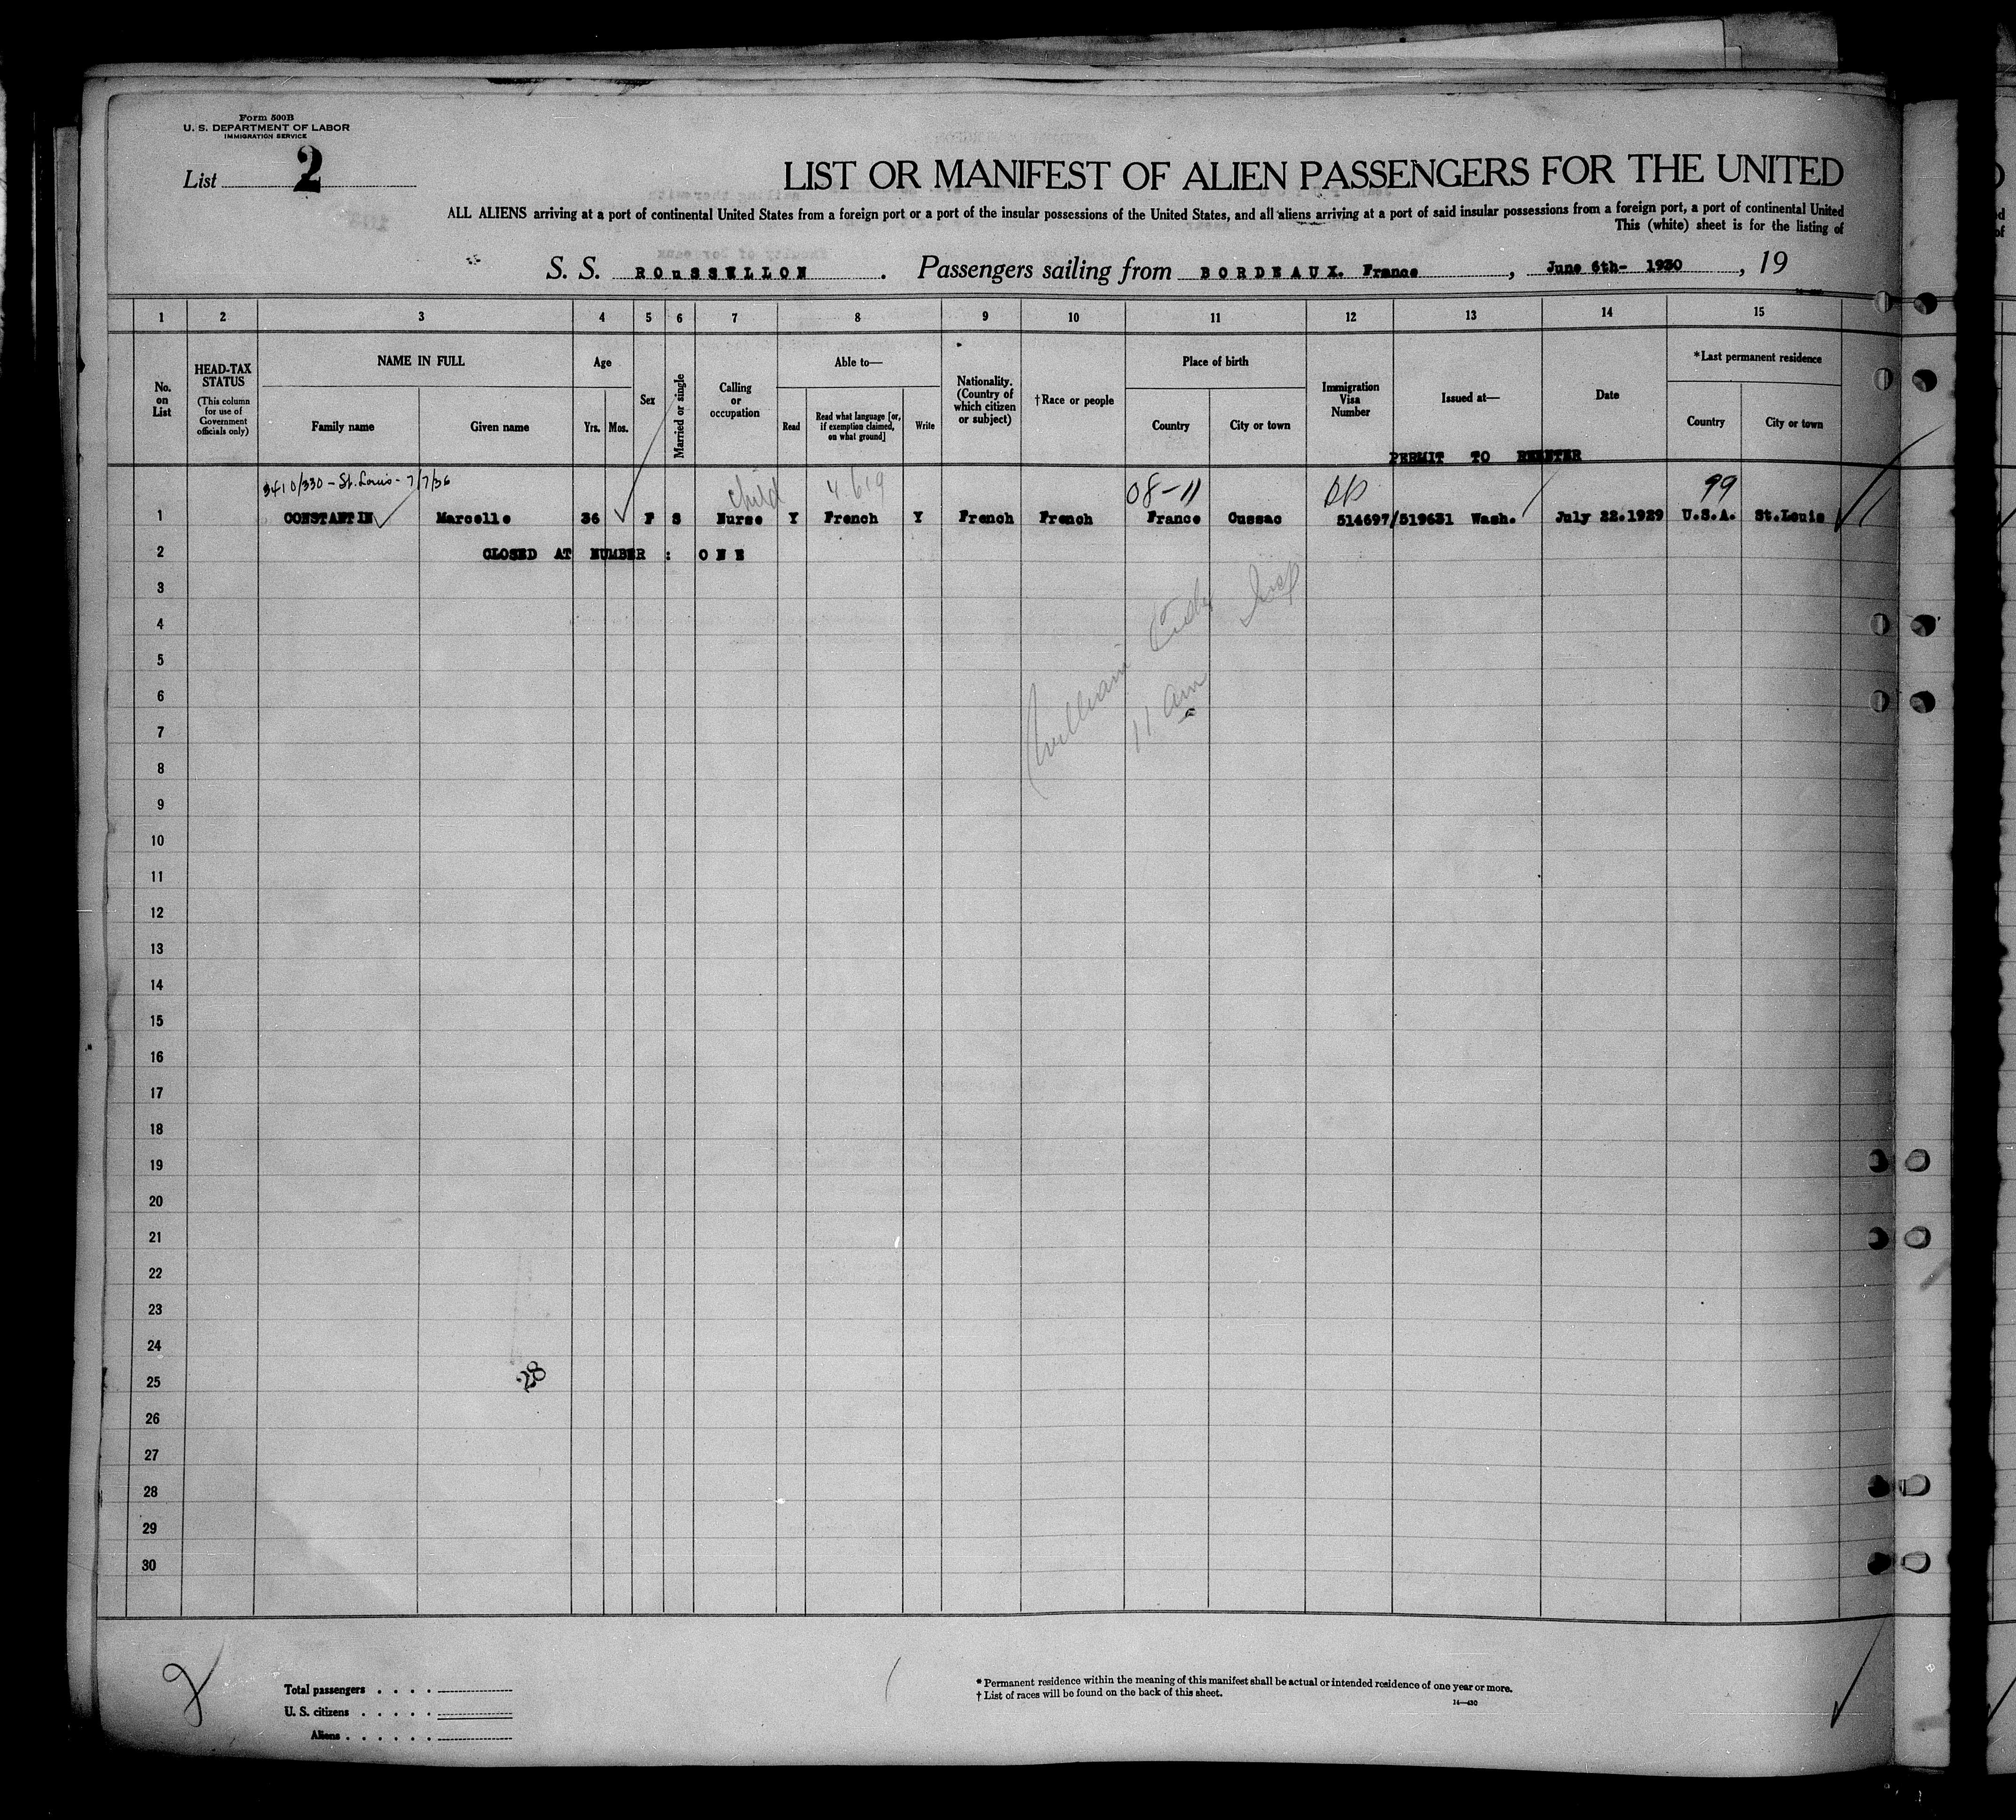 Form 500B
U. S. DEPARTMENT OF LABOR
IMMIGRATION SERVICE
List 2
LIST OR MANIFEST OF ALIEN PASSENGERS FOR THE UNITED
ALL ALIENS arriving at a port of continental United States from a foreign port or a port of the insular possessions of the United States, and all aliens arriving at a port of said insular possessions from a foreign port, a port of continental United
This (white) sheet is for the listing of
S. S. ROUSSELLON . Passengers sailing from BORDEAUX. France , June 6th- 1930 , 19
1 2 3 4 5 6 7 8 9 10 11 12 13 14 15
No. on List
HEAD-TAX STATUS
(This column for use of Government officials only)
NAME IN FULL
Family name Given name
Age
Yrs. Mos.
Sex
Married or single
Calling or occupation
Able to—
Read
Read what language [or, if exemption claimed, on what ground]
Write
Nationality. (Country of which citizen or subject)
†Race or people
Place of birth
Country City or town
Immigration Visa Number
Issued at—
Date
*Last permanent residence
Country City or town
PERMIT TO REENTER
3410/330 - St. Louis - 7/7/36 child 4 619 08-11 99
1 CONSTANTIN Marcelle 36 F S Nurse Y French Y French French France Cussac 514697/519631 Wash. July 22.1929 U.S.A. St.Louis
2 CLOSED AT NUMBER : ONE
3
4
5
6
7
8
9
10
11
12
13
14
15
16
17
18
19
20
21
22
23
24
25
26
27
28
29
30
William Insp
11 am
28
2
Total passengers
U. S. citizens
Aliens
* Permanent residence within the meaning of this manifest shall be actual or intended residence of one year or more.
† List of races will be found on the back of this sheet.
14—430